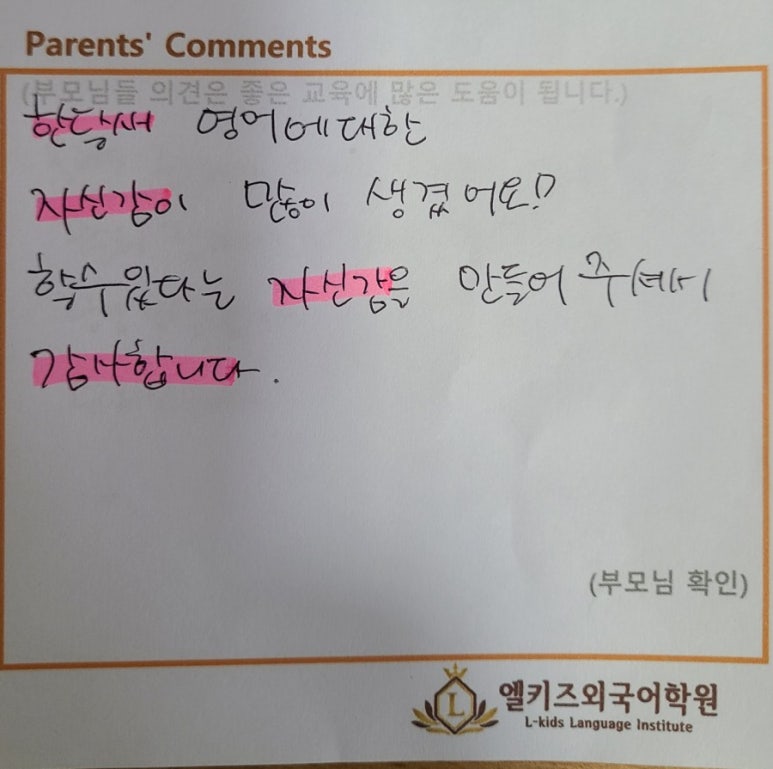 Parents' Comments
(부모님들 의견은 좋은 교육에 많은 도움이 됩니다.)
한달새 영어에대한
자신감이 많이 생겼어요!
할수있다는 자신감을 만들어 주셔서
감사합니다.
(부모님 확인)
L
엘키즈외국어학원
L-kids Language Institute